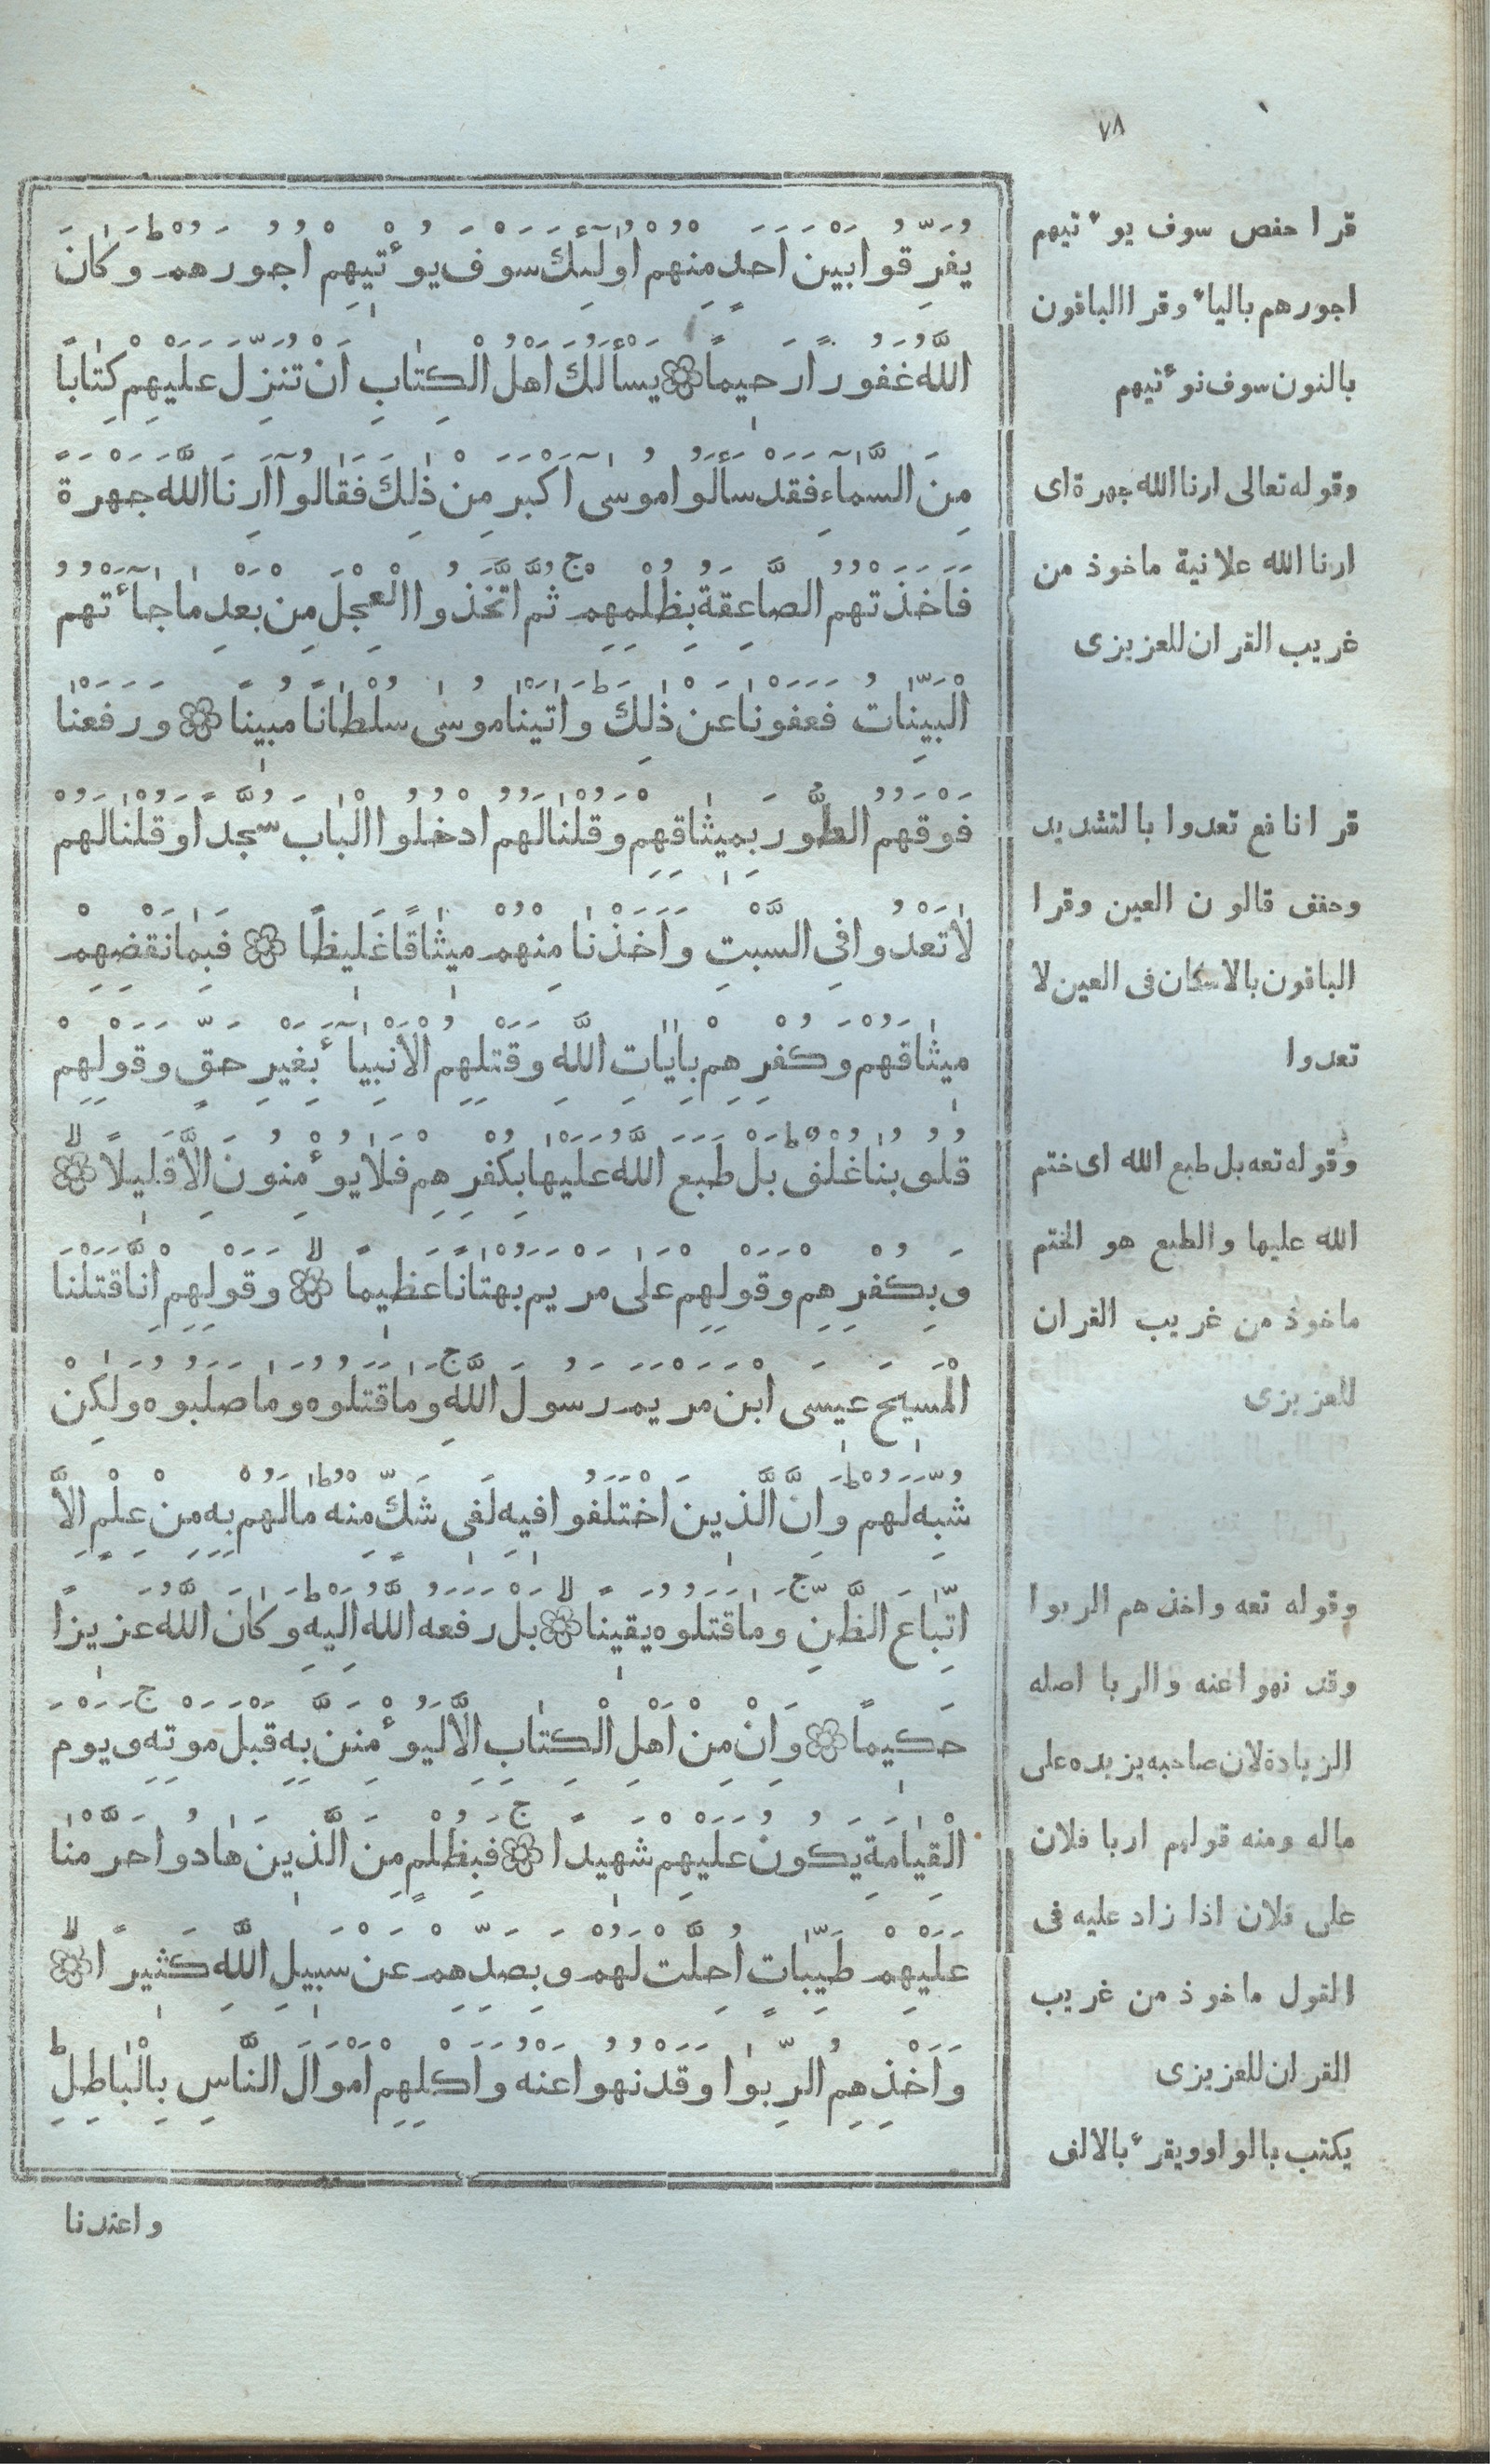 ٧٨
يُفَرِّقُوا بَيْنَ اَحَدٍ مِنْهُمْ اُولٰٓئِكَ سَوْفَ يُوءْتِيهِمْ اُجُورَهُمْ ط وَكَانَ
اللَّهُ غَفُورًا رَحِيمًا ۞ يَسْأَلُكَ اَهْلُ الْكِتٰابِ اَنْ تُنَزِّلَ عَلَيْهِمْ كِتٰابًا
مِنَ السَّمٰٓاءِ فَقَدْ سَأَلُوا مُوسٰٓى اَكْبَرَ مِنْ ذٰلِكَ فَقٰالُوٓا اَرِنَا اللَّهَ جَهْرَةً
فَاَخَذَتْهُمُ الصَّاعِقَةُ بِظُلْمِهِمْ ج ثُمَّ اتَّخَذُوا الْعِجْلَ مِنْ بَعْدِ مٰا جٰٓاءَتْهُمُ
الْبَيِّنٰاتُ فَعَفَوْنٰا عَنْ ذٰلِكَ ط وَاٰتَيْنٰا مُوسٰى سُلْطٰانًا مُبِينًا ۞ وَرَفَعْنٰا
فَوْقَهُمُ الطُّورَ بِمِيثٰاقِهِمْ وَقُلْنٰا لَهُمُ ادْخُلُوا الْبٰابَ سُجَّدًا وَقُلْنٰا لَهُمْ
لٰا تَعْدُوا فِى السَّبْتِ وَاَخَذْنٰا مِنْهُمْ مِيثٰاقًا غَلِيظًا ۞ فَبِمٰا نَقْضِهِمْ
مِيثٰاقَهُمْ وَكُفْرِهِمْ بِاٰيٰاتِ اللَّهِ وَقَتْلِهِمُ الْاَنْبِيٰٓاءَ بِغَيْرِ حَقٍّ وَقَوْلِهِمْ
قُلُوبُنٰا غُلْفٌ ط بَلْ طَبَعَ اللَّهُ عَلَيْهٰا بِكُفْرِهِمْ فَلٰا يُوءْمِنُونَ اِلَّا قَلِيلًا لا ۞
وَبِكُفْرِهِمْ وَقَوْلِهِمْ عَلٰى مَرْيَمَ بُهْتٰانًا عَظِيمًا لا ۞ وَقَوْلِهِمْ اِنَّا قَتَلْنَا
الْمَسِيحَ عِيسَى ابْنَ مَرْيَمَ رَسُولَ اللَّهِ ج وَمٰا قَتَلُوهُ وَمٰا صَلَبُوهُ وَلٰكِنْ
شُبِّهَ لَهُمْ ط وَاِنَّ الَّذِينَ اخْتَلَفُوا فِيهِ لَفِى شَكٍّ مِنْهُ ط مٰا لَهُمْ بِهِ مِنْ عِلْمٍ اِلَّا
اتِّبٰاعَ الظَّنِّ ج وَمٰا قَتَلُوهُ يَقِينًا لا ۞ بَلْ رَفَعَهُ اللَّهُ اِلَيْهِ ط وَكٰانَ اللَّهُ عَزِيزًا
حَكِيمًا ۞ وَاِنْ مِنْ اَهْلِ الْكِتٰابِ اِلَّا لَيُوءْمِنَنَّ بِهِ قَبْلَ مَوْتِهِ ج وَيَوْمَ
الْقِيٰامَةِ يَكُونُ عَلَيْهِمْ شَهِيدًا ج ۞ فَبِظُلْمٍ مِنَ الَّذِينَ هٰادُوا حَرَّمْنٰا
عَلَيْهِمْ طَيِّبٰاتٍ اُحِلَّتْ لَهُمْ وَبِصَدِّهِمْ عَنْ سَبِيلِ اللَّهِ كَثِيرًا لا ۞
وَاَخْذِهِمُ الرِّبٰوا وَقَدْ نُهُوا عَنْهُ وَاَكْلِهِمْ اَمْوَالَ النَّاسِ بِالْبٰاطِلِ ط
واعتدنا
قرا حفص سوف يوءتيهم
اجورهم بالياء وقرا الباقون
بالنون سوف نوءتيهم
وقوله تعالى ارنا الله جهرة اى
ارنا الله علانية ماخوذ من
غريب القران للعزيزى
قرا نافع تعدوا بالتشديد
وخفف قالون العين وقرا
الباقون بالاسكان فى العين لا
تعدوا
وقوله تعه بل طبع الله اى ختم
الله عليها والطبع هو الختم
ماخوذ من غريب القران
للعزيزى
وقوله تعه واخذهم الربوا
وقد نهوا عنه والربا اصله
الزيادة لان صاحبه يزيده على
ماله ومنه قولهم اربا فلان
على فلان اذا زاد عليه فى
القول ماخوذ من غريب
القران للعزيزى
يكتب بالواو ويقرء بالالف